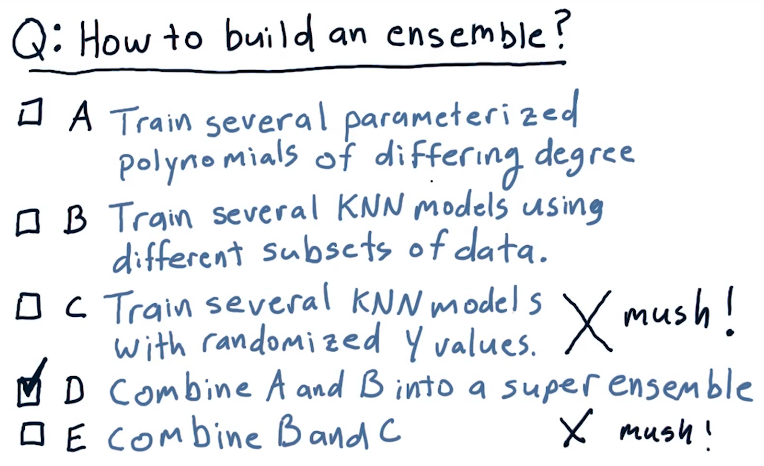 Q: How to build an ensemble?
A Train several parameterized
polynomials of differing degree
B Train several KNN models using
different subsets of data.
C Train several KNN models X mush!
with randomized Y values.
D Combine A and B into a super ensemble
E Combine B and C X mush!